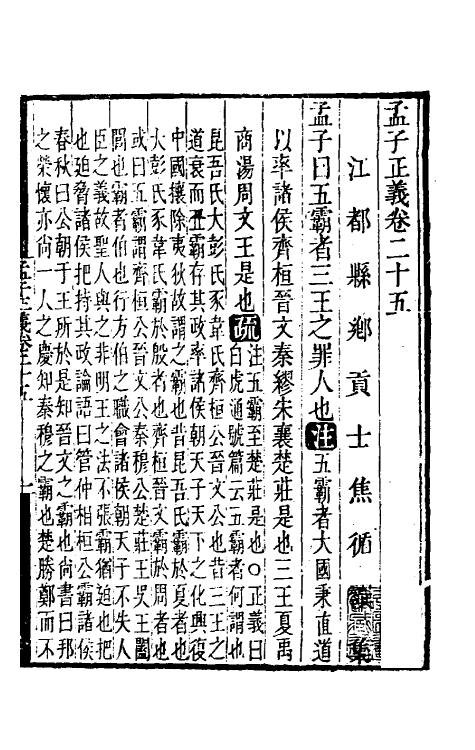 孟子正義卷二十五
江都縣鄉貢士焦循譔集
孟子曰五霸者三王之罪人也注五霸者大國秉直道
以率諸侯齊桓晉文秦繆宋襄楚莊是也三王夏禹
商湯周文王是也疏注五霸至楚莊是也○正義曰
白虎通號篇云五霸者何謂也
昆吾氏大彭氏豕韋氏齊桓公晉文公也昔三王之
道衰而五霸存其政率諸侯朝天子正天下之化興復
中國攘除夷狄故謂之霸也昔昆吾氏霸於夏者也
大彭氏豕韋氏霸於殷者也齊桓晉文霸於周者也
或曰五霸謂齊桓公晉文公秦穆公楚莊王吳王闔
閭也霸者伯也行方伯之職會諸侯朝天子不失人
臣之義故聖人與之非明王之法不張霸猶迫也把
也迫脅諸侯把持其政論語曰管仲相桓公霸諸侯
春秋曰公朝于王所於是知晉文之霸也尚書曰邦
之榮懷亦尚一人之慶知秦穆之霸也楚勝鄭而不
孟子正義卷二十五 一